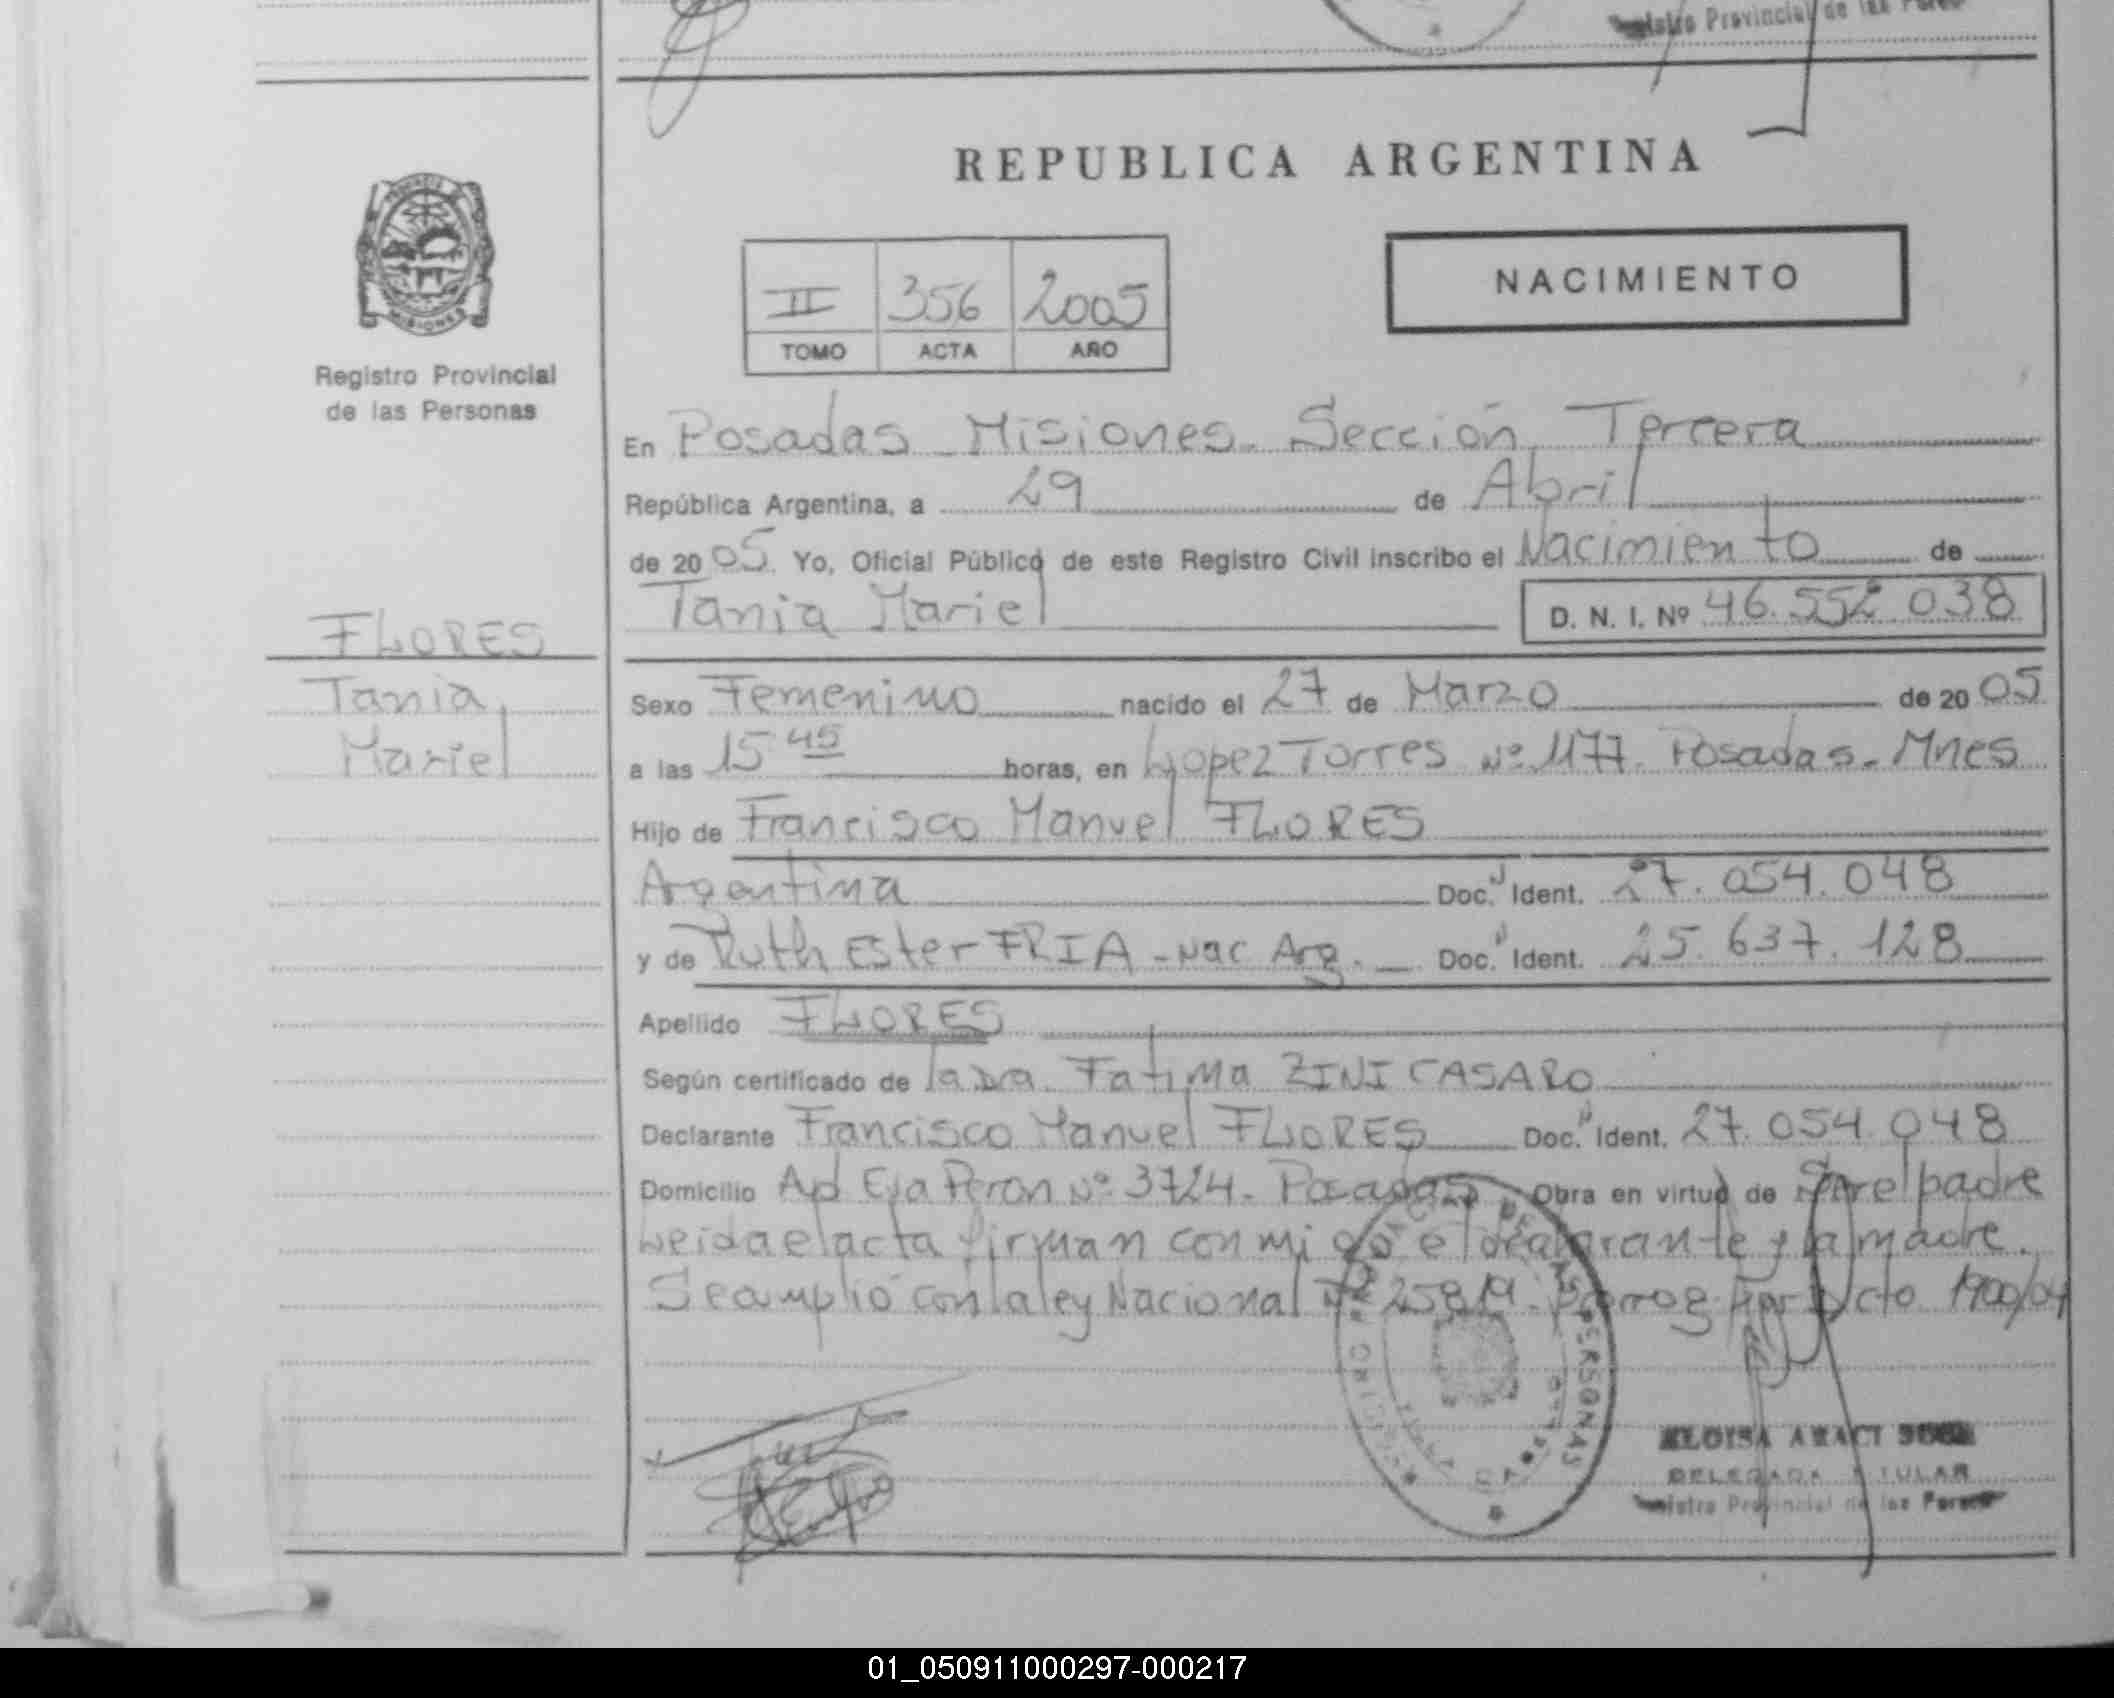 Registro Provincial de las Perso
REPUBLICA ARGENTINA
PROVINCIA DE
MISIONES
Registro Provincial
de las Personas
II 356 2005
TOMO ACTA AÑO
NACIMIENTO
En Posadas Misiones. Sección Tercera
República Argentina, a 29 de Abril
de 2005 Yo, Oficial Público de este Registro Civil inscribo el Nacimiento de
Tania Mariel D. N. I. Nº 46.552.038
FLORES
Tania
Mariel
Sexo Femenino nacido el 27 de Marzo de 2005
a las 15 45 horas, en Lopez Torres Nº 1177. Posadas. Mnes
Hijo de Francisco Manuel FLORES
Argentina Doc. Ident. 27.054.048
y de Ruth Ester FRIA - Nac Arg. Doc. Ident. 25.637.128
Apellido FLORES
Según certificado de la Dra. Fatima ZINI CASARO
Declarante Francisco Manuel FLORES Doc. Ident. 27.054.048
Domicilio Av Eva Peron Nº 3724. Posadas Obra en virtud de Ser el padre
Leida el acta firman conmigo el declarante y la madre.
Se cumplió con la ley Nacional Nº 25819. Prorrog por Dcto 1900/04
DE LAS PERSONAS
ELOISA ARACI
DELEGADA TITULAR
Registro Provincial de las Perso
01_050911000297-000217